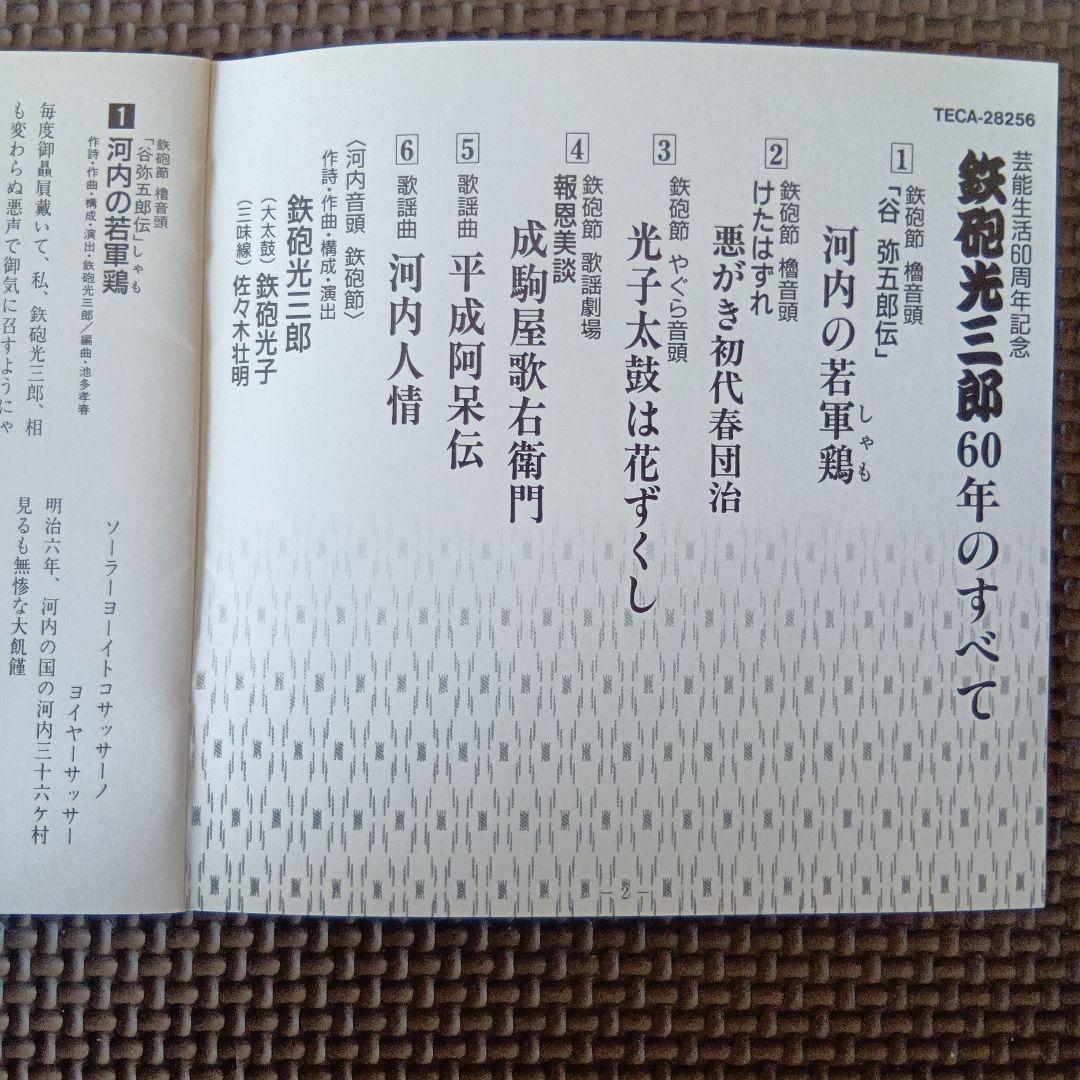 TECA-28256
芸能生活60周年記念
鉄砲光三郎60年のすべて
1
鉄砲節 櫓音頭
「谷 弥五郎伝」
河内の若軍鶏
しゃも
2
鉄砲節 櫓音頭
けたはずれ
悪がき初代春団治
3
鉄砲節 やぐら音頭
光子太鼓は花ずくし
4
鉄砲節 歌謡劇場
報恩美談
成駒屋歌右衛門
5 歌謡曲 平成阿呆伝
6 歌謡曲 河内人情
〈河内音頭 鉄砲節〉
作詩・作曲・構成・演出
鉄砲光三郎
(大太鼓) 鉄砲光子
(三味線) 佐々木壮明
― 2 ―
1
鉄砲節 櫓音頭
「谷弥五郎伝」
しゃも
河内の若軍鶏
作詩・作曲・構成・演出・鉄砲光三郎／編曲・池多孝春
ソーラーヨーイトコサッサーノ
ヨイヤーサッサー
明治六年、河内の国の河内三十六ケ村
見るも無惨な大飢饉
毎度御贔屓戴いて、私、鉄砲光三郎、相
も変わらぬ悪声で御気に召すようにゃ